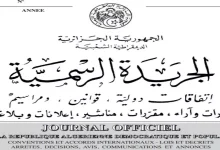 N°
ANNEE
الجمهورية الجزائرية
الديمقراطية الشعبية
الجريدة الرسمية
إتفاقات دولية، قوانين، ومراسيم
وآراء، مقررات، مناشير، إعلانات وبلا
JOURNAL OFFICIEL
LA REPUBLIQUE ALGERIENNE DEMOCRATIQUE ET POPUL
CONVENTIONS ET ACCORDS INTERNATIONAUX - LOIS ET DECRETS
ARRETES, DECISIONS, AVIS, COMMUNICATIONS ET ANNONCES